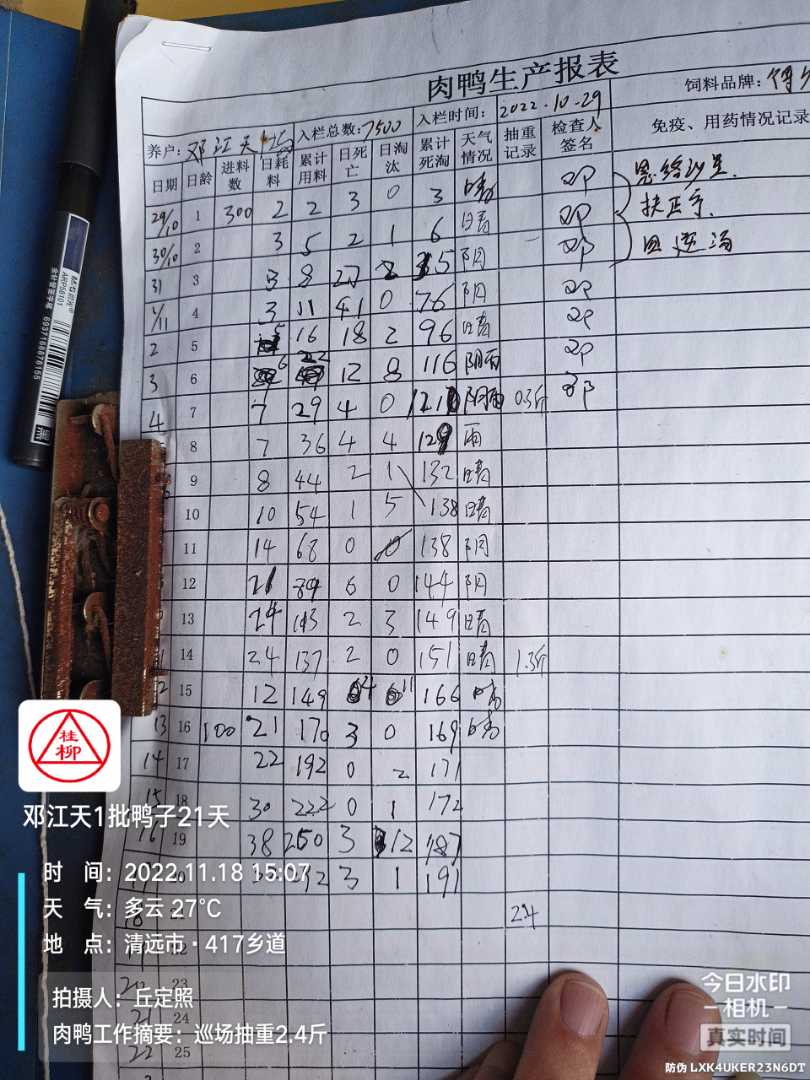 肉鸭生产报表
养户: 邓江天 入栏总数: 7500 入栏时间: 2022.10.29 饲料品牌:
日期 日龄 进料数 日耗料 累计用料 日死亡 日淘汰 累计死淘 天气情况 抽重记录 检查人签名 免疫、用药情况记录
29/10 1 300 2 2 3 0 3 晴 邓
30/10 2 3 5 2 1 6 晴 邓
扶正
31 3 3 8 27 2 35 阴 邓
1/11 4 3 11 41 0 76 阴 邓
2 5 5 16 18 2 96 晴 邓
3 6 6 22 12 8 116 阴雨 邓
4 7 7 29 4 0 121 阴雨 0.3斤 邓
8 7 36 4 4 129 雨
9 8 44 2 1 132 晴
10 10 54 1 5 138 晴
11 14 68 0 0 138 阴
12 21 89 6 0 144 阴
13 24 113 2 3 149 晴
14 24 137 2 0 151 晴 1.3斤
15 12 149 4 11 166 晴
13 16 100 21 170 3 0 169 晴
14 17 22 192 0 2 171
15 18 30 222 0 1 172
16 19 38 250 3 12 187
20 292 3 1 191
2.4
23
21 24
22 25
桂柳
邓江天1批鸭子21天
时 间: 2022.11.18 15:07
天 气: 多云 27℃
地 点: 清远市·417乡道
拍摄人: 丘定照
肉鸭工作摘要: 巡场抽重2.4斤
今日水印
相机
真实时间
防伪 LXK4UKER23N6DT
ARP50101
6937168876155